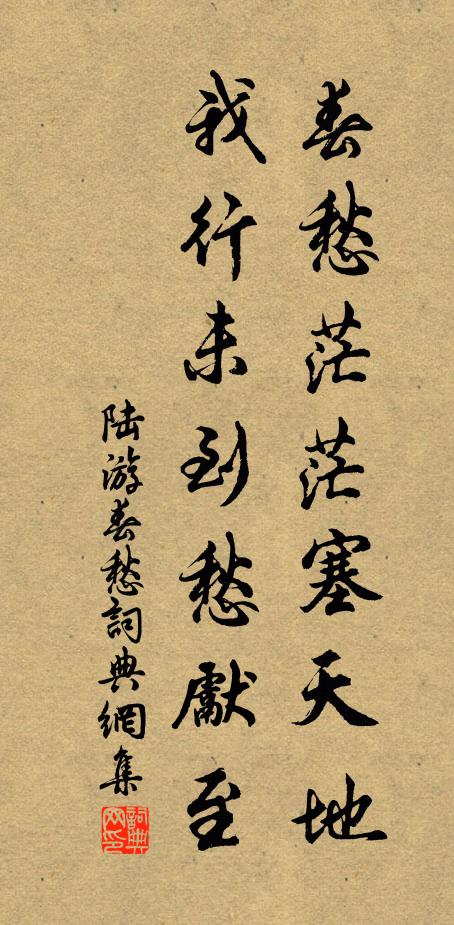 春愁茫茫塞天地
我行未到愁獻至
陸游春愁詞典網集
詞典网印